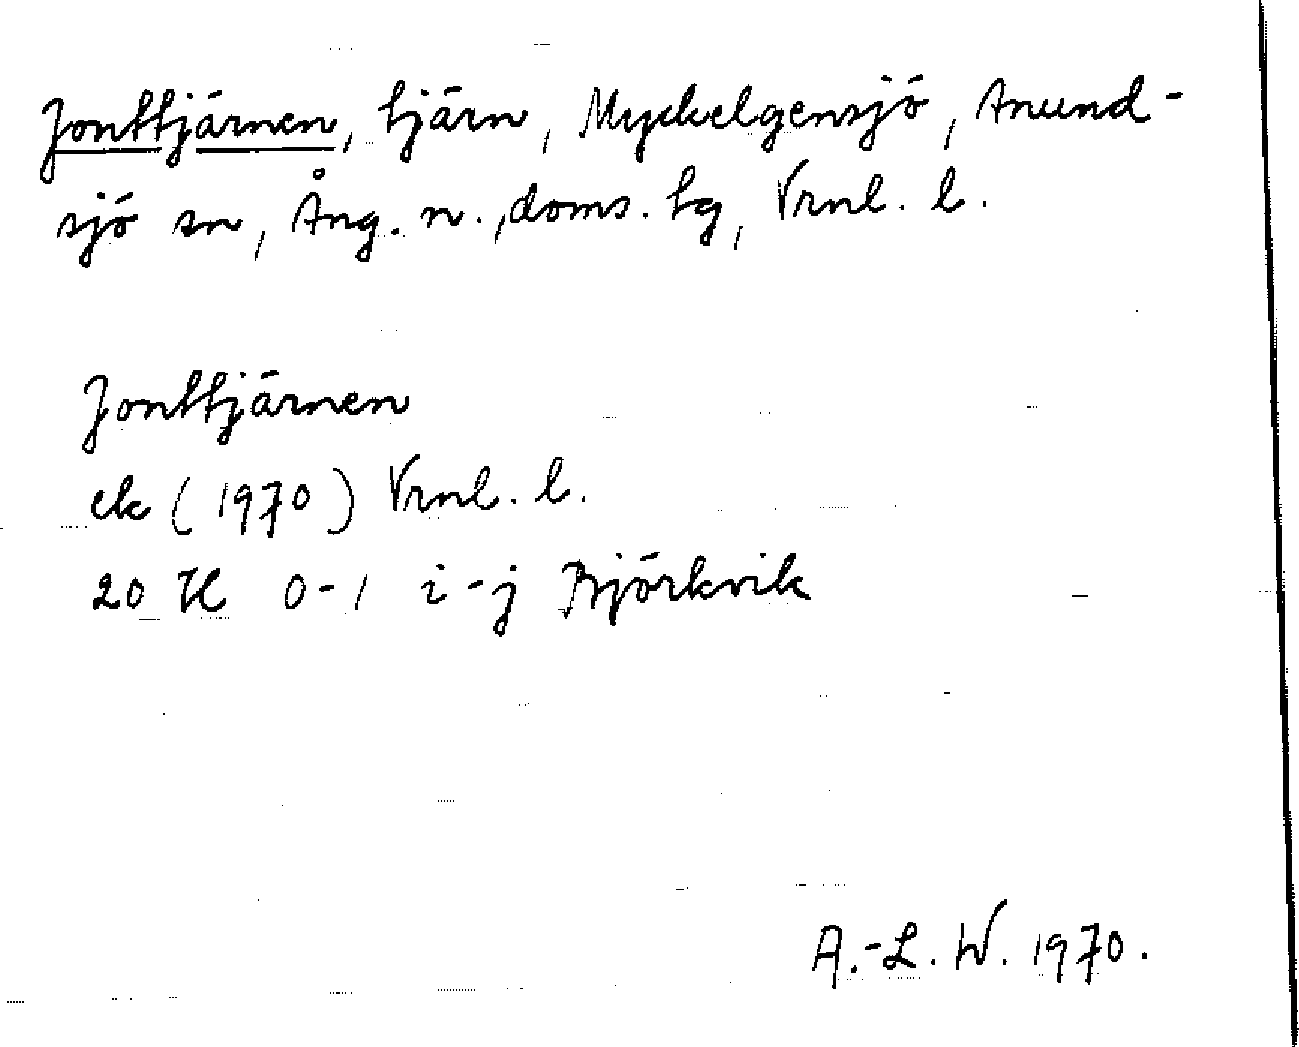 Jonttjärnen, tjärn, Myckelgensjö, Anund-
sjö sn, Ång. n., doms. tg, Vrnl. l.
Jonttjärnen
ek (1970) Vrnl. l.
20 H 0-1 i-j Björkvik
A.-L. W. 1970.